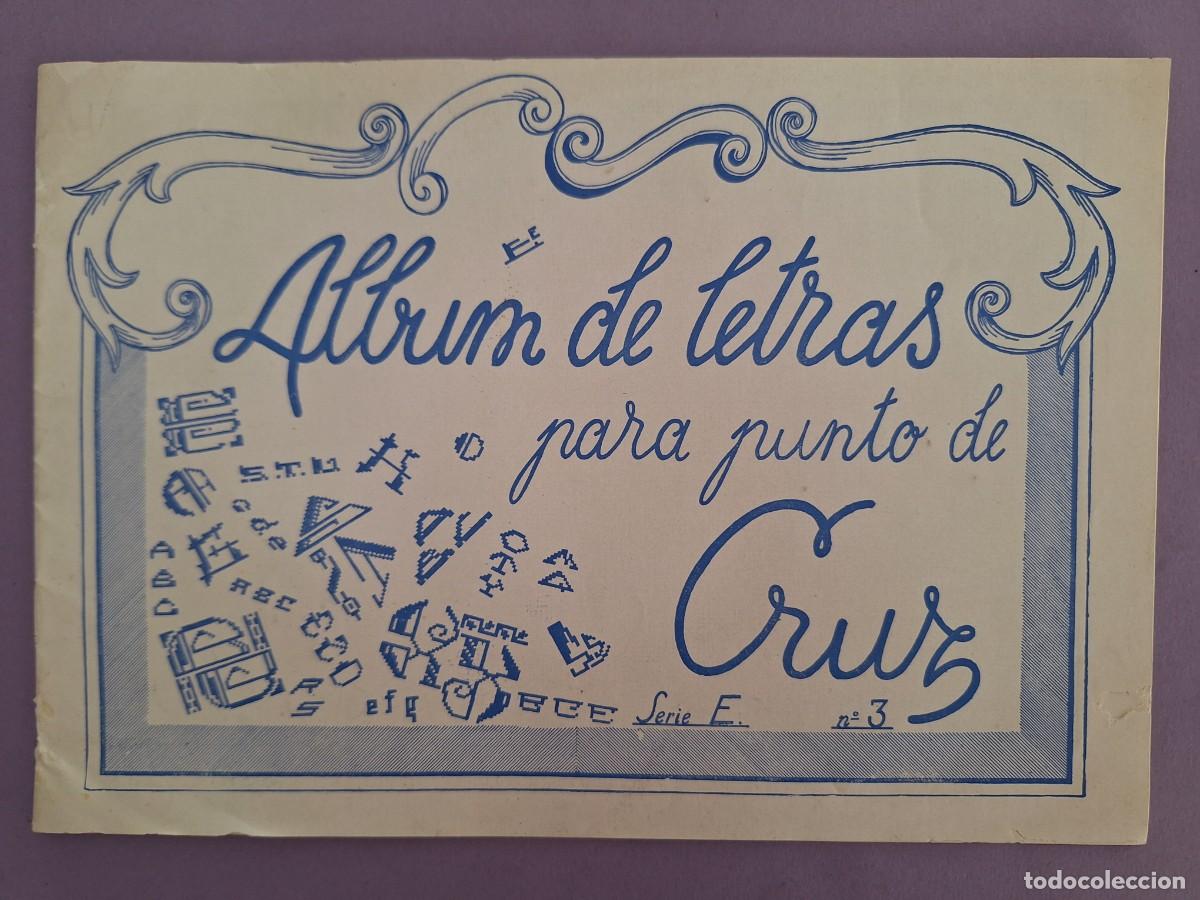 E.E
Album de letras
para punto de
Cruz
S.T.U.
c d e
A
B
C
A B C
R
S
e f g
B C E
Serie E. nº 3
todocoleccion